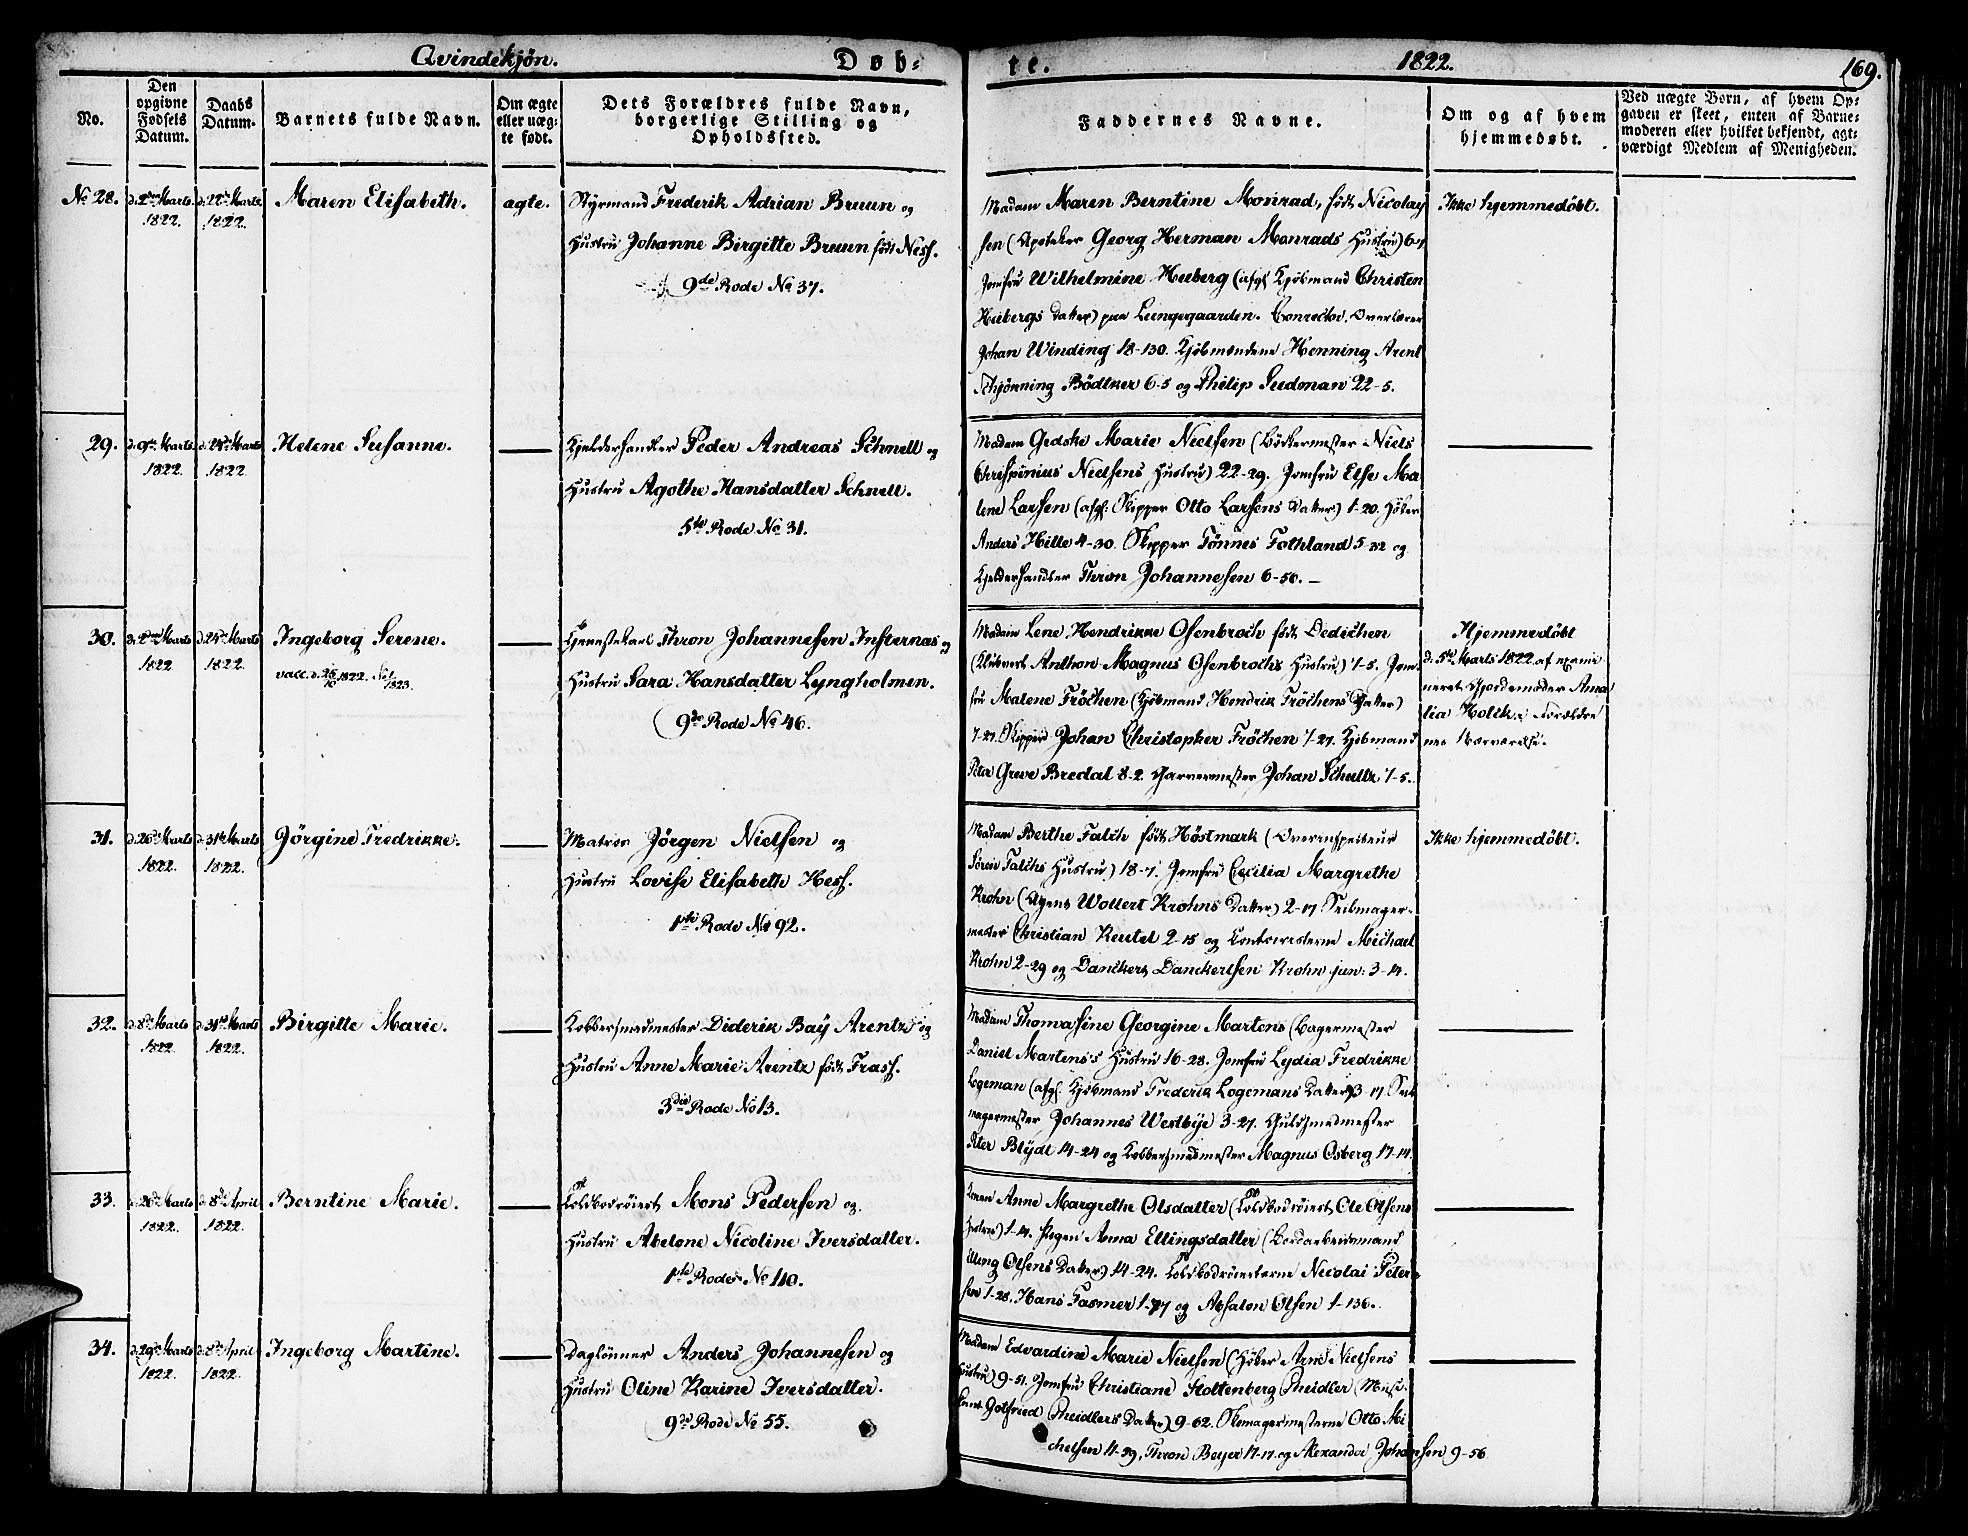 Qvindekjøn.
Døb-
te.
1822.
169.
No.
Den opgivne Fødsels Datum.
Daabs Datum.
Barnets fulde Navn.
Om ægte eller uægte født.
Dets Forældres fulde Navn, borgerlige Stilling og Opholdssted.
Faddernes Navne.
Om og af hvem hjemmedøbt.
Ved uægte Børn, af hvem Opgaven er skeet, enten af Barnemoderen eller hvilket bekjendt, agtværdigt Medlem af Menigheden.
No 28.
1822.
1822.
Maren Elisabeth.
ægte.
Styrmand Frederik Adrian Bruun og
Hustru Johanne Birgitte Bruun født Ness.
9de Rode No 37.
Madam Maren Berntine Monrad, født Nicolay
sen (Apoteker Georg Herman Monrads Hustru) 6-1
Jomfru Wilhelmine Heeberg (afgl Kjøbmand Christen
Heebergs Datter) paa Lungegaarden. Conrector, Overlærer
Johan Winding 18-130. Kjøbmændene Henning Arent
Schjønning Bödtker 6-5 og Philip Sudman 22-5.
Ikke hjemmedøbt.
29.
1822
1822
Helene Susanne.
Kjelderhandler Peder Andreas Schnell og
Hustru Agothe Hansdatter Schnell.
5te Rode No 31.
Madam Gedske Marie Nielsen (Bødkermester Niels
Chrispinius Nielsens Hustru) 22-29. Jomfru Else Ma
lene Larsen (afgl: Skipper Otto Larsens Datter) 1-20. Høker
Anders Hille 4-30. Skipper Tönnes Fothland 5-32 og
Kjelderhandler Thron Johannesen 6-50. –
30.
1822
1822.
Ingeborg Serene.
Tjenestekarl Thron Johannesen Insternæs og
Hustru Sara Hansdatter Lyngholmen.
9de Rode No 46.
Madam Lene Hendrikke Osenbroch født Dedichen
(Klubvert Anthon Magnus Osenbrochs Hustru) 7-5. Jom-
fru Malene Fröchen (Kjøbmand Hendrik Fröchens Datter)
7-27. Skipper Johan Christopher Fröchen 7-27. Kjøbmand
Peter Greve Bredal 8-2. Garvermester Johan Schultz 7-5.
Hjemmedøbt
d. 5te Marts 1822 af exami
neret Gjordemoder Ama
lia Holck i Forældre
nes Nærværelse.
31.
d. 26de Marts
d. 31te Marts
1822.
1822.
Jörgine Fredrikke.
Matros Jörgen Nielsen og
Hustru Lovise Elisabeth Hess.
1ste Rode No 92.
Madam Berthe Falch født Höstmark (Overinspecteur
Sören Falchs Hustru) 18-7. Jomfru Cecilia Margrethe
Krohn (Agent Wollert Krohns Datter) 2-17 Seilmager-
mester Christian Reutel 2-15 og Contoristerne Michael
Krohn 2-29 og Danckert Danckertsen Krohn jun: 3-14.
Ikke hjemmedøbt.
32.
d. 8de Marts
d. 31te Marts
1822
1822.
Birgitte Marie.
Kobbersmedmester Diderik Bay Arentz og
Hustru Anne Marie Arentz født Frass.
3die Rode No 13.
Madam Thomasine Georgine Martens (Bagermester
Daniel Martens's Hustru 16-28. Jomfru Lydia Fredrikke
Logeman (afgl. Kjøbmand Frederik Logemans Datter) 3-17 Seil
magermester Johannes Westbye 3-27. Guldsmedmester
Peter Blydt 14-24 og Kobbersmedmester Magnus Osberg 17-14.
33.
d. 26de Marts
d. 8de April
1822.
1822.
Berntine Marie.
Toldbodroiert Mons Pedersen og
Hustru Abelone Nicoline Iversdatter.
1ste Rode No 110.
Konen Anne Margrethe Olsdatter (Toldbodroiert Ole Olsens
Hustru) 1-4. Pigen Anna Ellingsdatter (Bordarbeidsmand
Elling Olsens Datter) 14-24. Toldbodroierterne Nicolai Peter
sen 1-28. Hans Fasmer 1-77 og Absalon Olsen 1-136.
34.
d. 29de Marts
d. 8de April
1822.
1822.
Ingeborg Martine.
Daglönner Anders Johannesen og
Hustru Oline Karine Iversdatter.
9de Rode No 55.
Madam Edvardine Marie Nielsen (Høker Arne Nielsens
Hustru) 9-51. Jomfru Christiane Stoltenberg Cheidler (Musi-
Gotfried Cheidlers Datter) 9-62. Skomagermesterne Otto Mi
chelsen 11-39, Thron Beyer 17-17. og Alexander Johansen 9-56